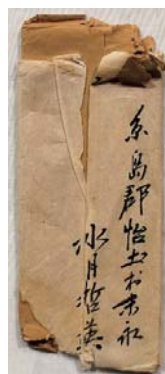 糸島郡怡土村末永
水月哲英